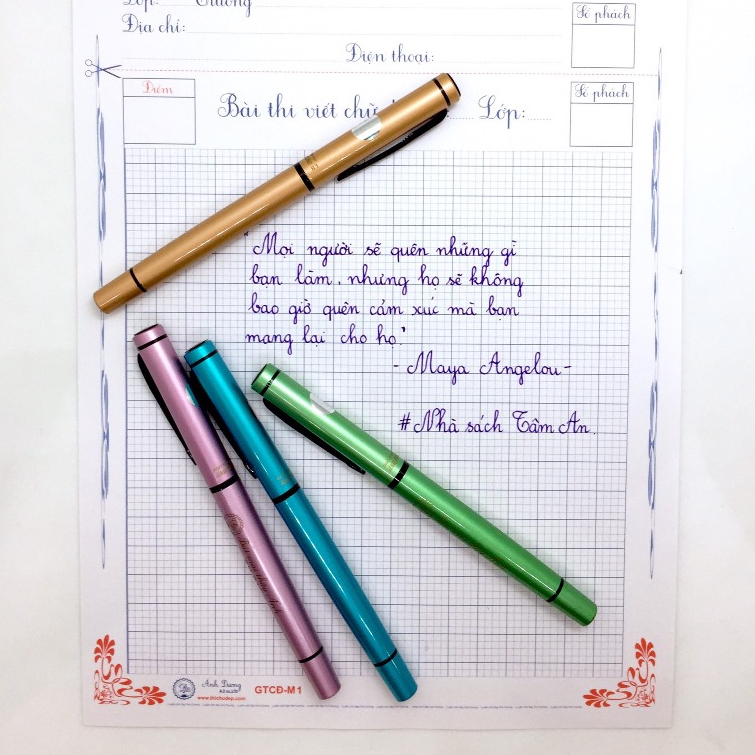 Lớp: Trường
Địa chỉ:
Điện thoại:
Số phách
Điểm
Bài thi viết chữ
Lớp:
Số phách
"Mọi người sẽ quên những gì
bạn làm, nhưng họ sẽ không
bao giờ quên cảm xúc mà bạn
mang lại cho họ"
- Maya Angelou-
#Nhà sách Tâm An.
Ánh Dương
www.thichudep.com
GTCĐ-M1